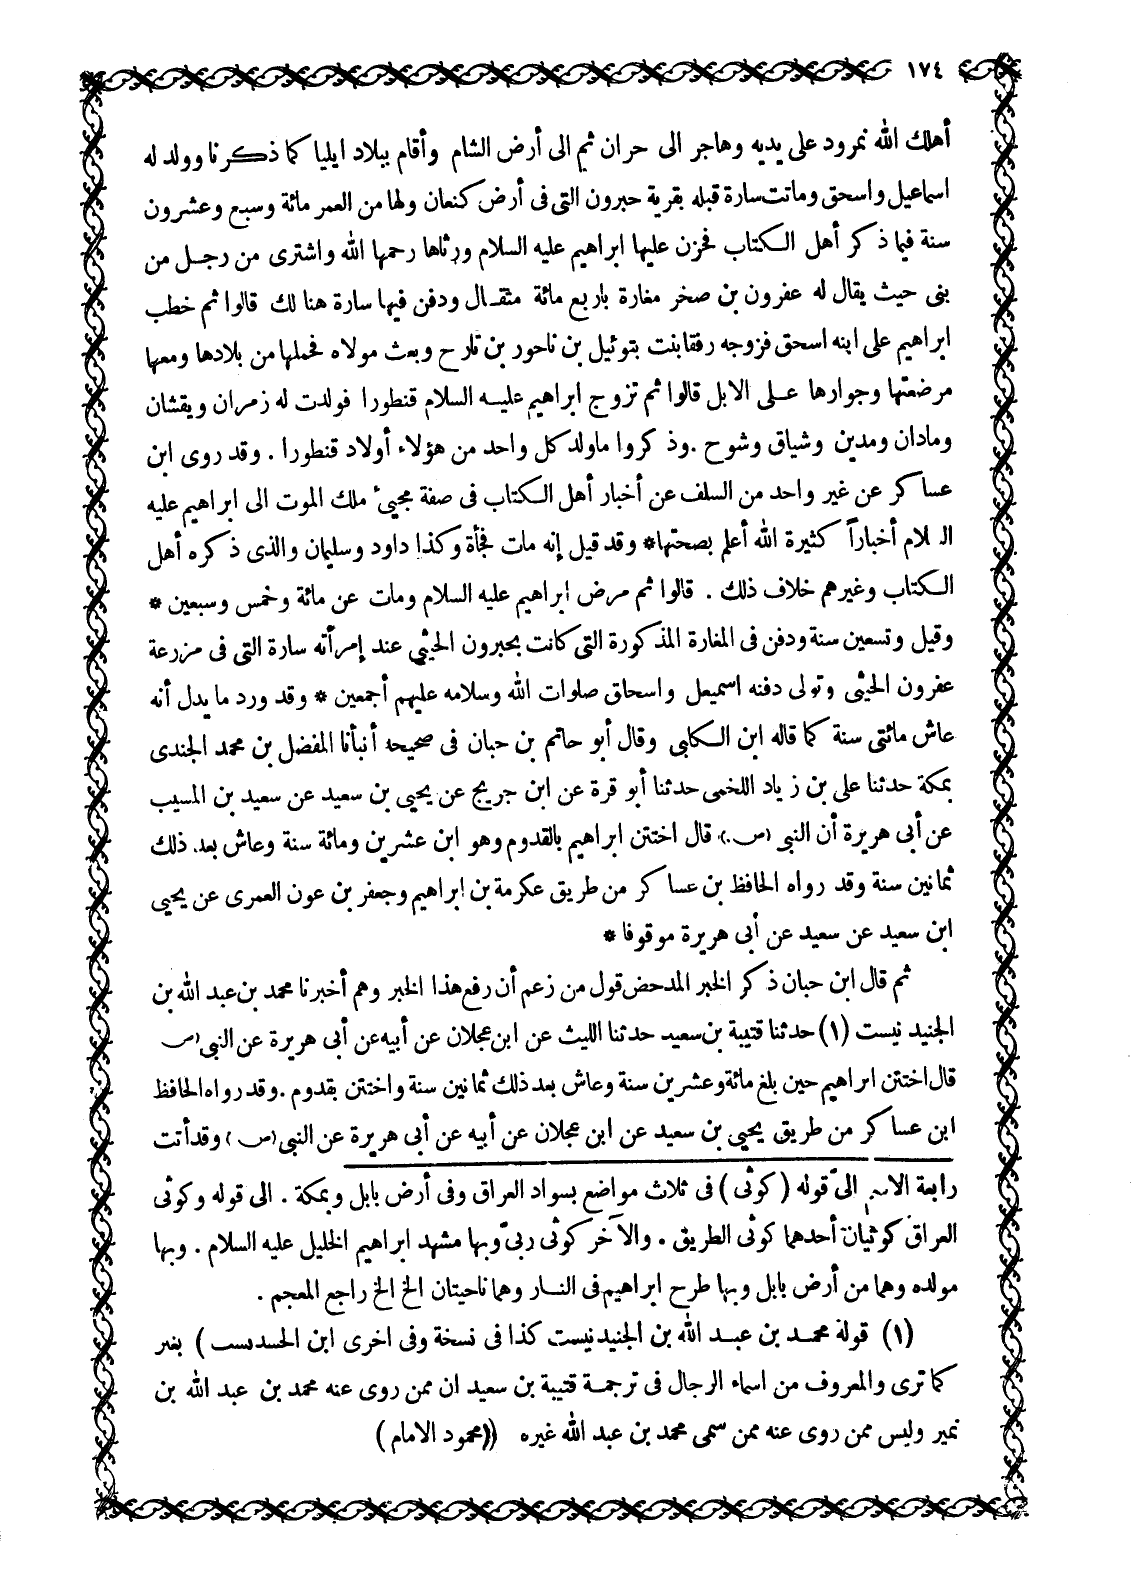 ١٧٤
أهلك الله نمرود على يديه وهاجر الى حران ثم الى أرض الشام وأقام ببلاد ايليا كما ذكرنا وولد له
اسماعيل واسحق وماتت سارة قبله بقرية حبرون التى فى أرض كنعان ولها من العمر مائة وسبع وعشرون
سنة فيما ذكر أهل الكتاب فحزن عليها ابراهيم عليه السلام ورثاها رحمها الله واشترى من رجل من
بنى حيث يقال له عفرون بن صخر مغارة باربع مائة مثقال ودفن فيها سارة هنا لك قالوا ثم خطب
ابراهيم على ابنه اسحق فزوجه رفقا بنت بتوئيل بن ناحور بن تارح وبعث مولاه فحملها من بلادها ومعها
مرضعتها وجوارها على الابل قالوا ثم تزوج ابراهيم عليه السلام قنطورا فولدت له زمران ويقشان
ومادان ومدين وشياق وشوح . وذكروا ماولد كل واحد من هؤلاء أولاد قنطورا . وقد روى ابن
عساكر عن غير واحد من السلف عن أخبار أهل الكتاب فى صفة مجيئ ملك الموت الى ابراهيم عليه
السلام أخباراً كثيرة الله أعلم بصحتها * وقد قيل إنه مات فجأة وكذا داود وسليمان والذى ذكره أهل
الكتاب وغيرهم خلاف ذلك . قالوا ثم مرض ابراهيم عليه السلام ومات عن مائة وخمس وسبعين *
وقيل وتسعين سنة ودفن فى المغارة المذكورة التى كانت بحبرون الحيثى عند إمرأته سارة التى فى مزرعة
عفرون الحيثى وتولى دفنه اسميعل واسحاق صلوات الله وسلامه عليهم أجمعين * وقد ورد ما يدل أنه
عاش مائتى سنة كما قاله ابن الكلبى وقال أبو حاتم بن حبان فى صحيحه أنبأنا المفضل بن محمد الجندى
بمكة حدثنا على بن زياد اللخمى حدثنا أبو قرة عن ابن جريج عن يحيى بن سعيد عن سعيد بن المسيب
عن أبى هريرة أن النبى (ص.) قال اختتن ابراهيم بالقدوم وهو ابن عشرين ومائة سنة وعاش بعد ذلك
ثمانين سنة وقد رواه الحافظ بن عساكر من طريق عكرمة بن ابراهيم وجعفر بن عون العمرى عن يحيى
ابن سعيد عن سعيد عن أبى هريرة موقوفا *
ثم قال ابن حبان ذكر الخبر المدحض قول من زعم أن رفع هذا الخبر وهم أخبرنا محمد بن عبد الله بن
الجنيد نيست (١) حدثنا قتيبة بن سعيد حدثنا الليث عن ابن عجلان عن أبيه عن أبى هريرة عن النبى (ص
قال اختتن ابراهيم حين بلغ مائة وعشرين سنة وعاش بعد ذلك ثمانين سنة واختتن بقدوم . وقد رواه الحافظ
ابن عساكر من طريق يحيى بن سعيد عن ابن عجلان عن أبيه عن أبى هريرة عن النبى (ص) وقد أتت
رابعة الاسم الى قوله (كوثى) فى ثلاث مواضع بسواد العراق وفى أرض بابل وبمكة . الى قوله وكوثى
العراق كوثيان أحدهما كوثى الطريق . والآخر كوثى ربى وبها مشهد ابراهيم الخليل عليه السلام . وبها
مولده وهما من أرض بابل وبها طرح ابراهيم فى النار وهما ناحيتان الخ الخ راجع المعجم .
(١) قوله محمد بن عبد الله بن الجنيد نيست كذا فى نسخة وفى اخرى ابن
كما ترى والمعروف من اسماء الرجال فى ترجمة قتيبة بن سعيد ان ممن روى عنه محمد بن عبد الله بن
نمير وليس ممن روى عنه ممن سمى محمد بن عبد الله غيره ((محمود الامام)